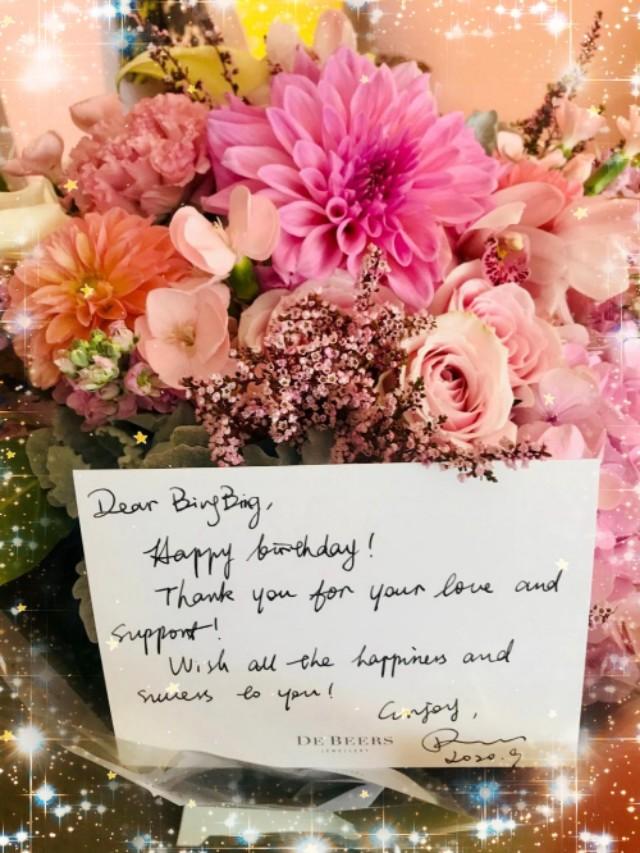 Dear BingBing,
Happy birthday!
Thank you for your love and
support!
Wish all the happiness and
success to you!
Enjoy,
DE BEERS
JEWELLERY
2020.9